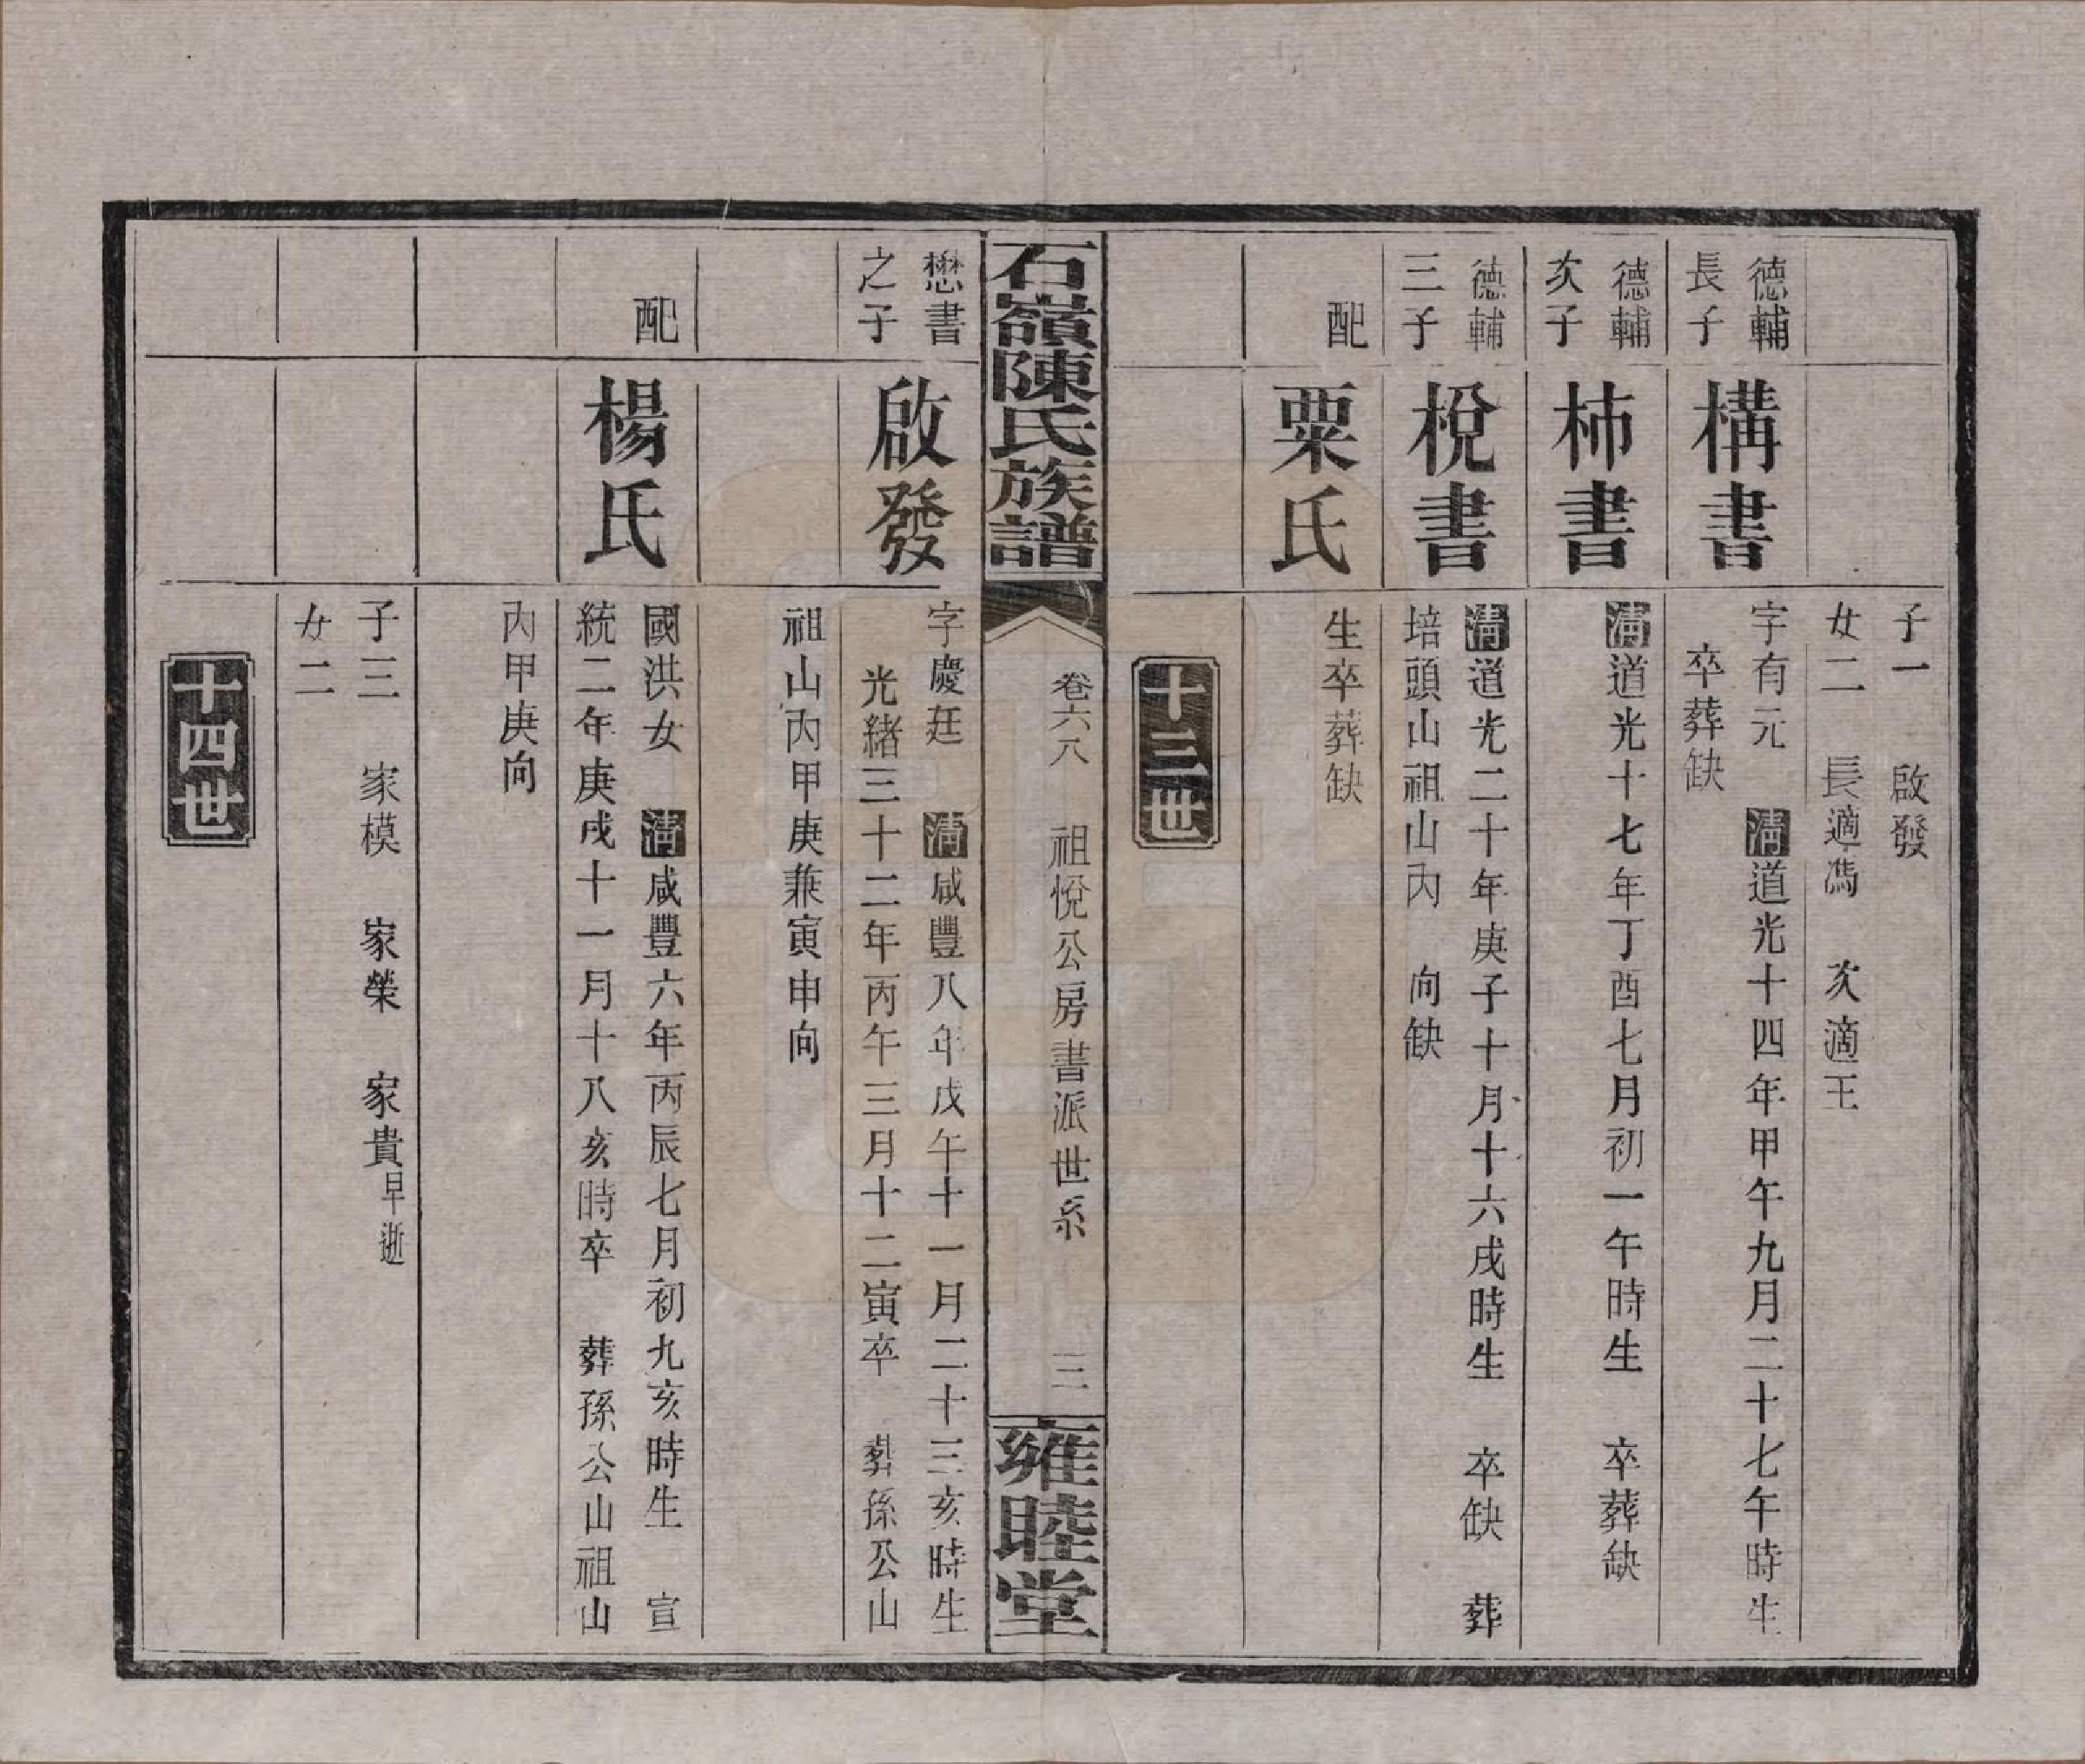 子一　啟發
女二　長適馮　次適王
德輔
長子
構書
字有元　清道光十四年甲午九月二十七午時生
卒葬缺
德輔
次子
柿書
清道光十七年丁酉七月初一午時生　卒葬缺
德輔
三子
梲書
清道光二十年庚子十月十六戌時生　卒缺　葬
培頭山祖山內　向缺
配
粟氏
生卒葬缺
十三世
石嶺陳氏族譜
卷六八　祖悅公房書派世系　三
雍睦堂
懋書
之子
啟發
字慶廷　清咸豐八年戊午十一月二十三亥時生
光緒三十二年丙午三月十二寅卒　葬孫公山
祖山內甲庚兼寅申向
配
楊氏
國洪女　清咸豐六年丙辰七月初九亥時生　宣
統二年庚戌十一月十八亥時卒　葬孫公山祖山
內甲庚向
子三　家模　家榮　家貴早逝
女二
十四世